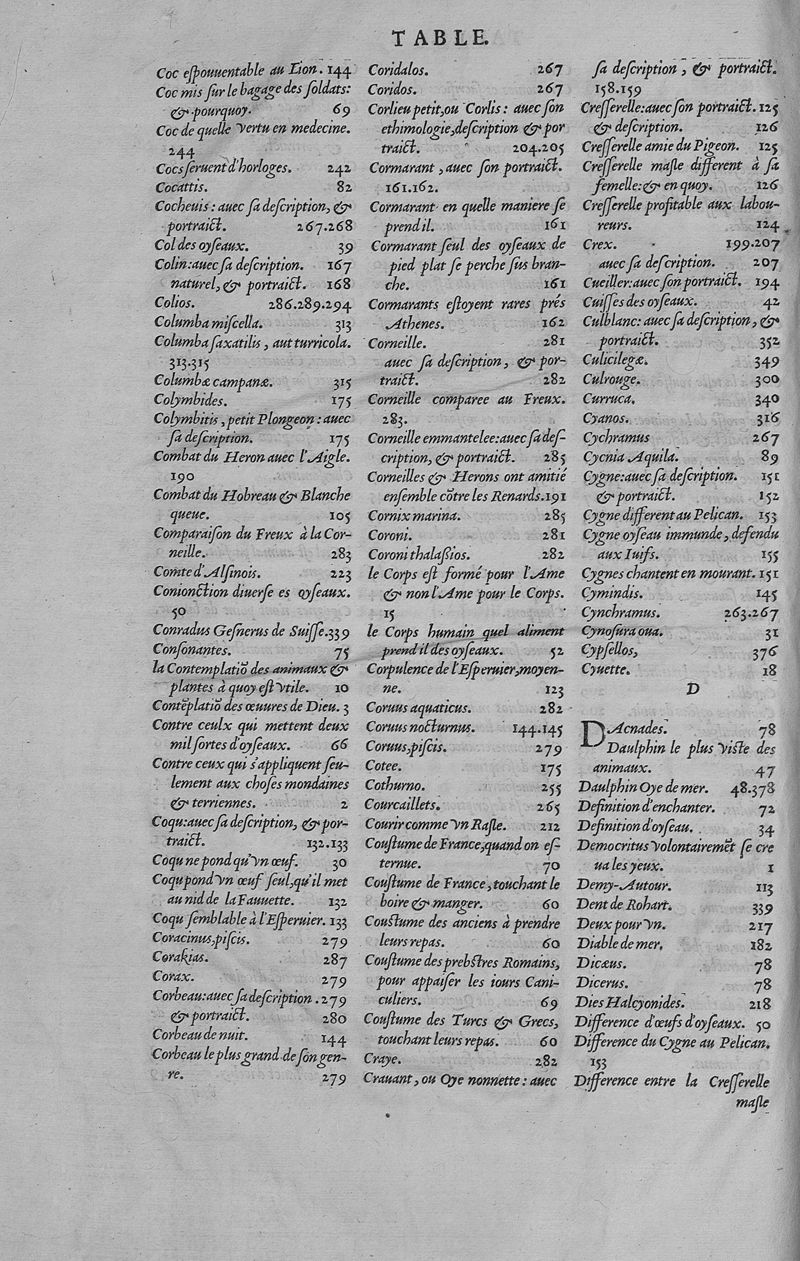 TABLE.
Coc eſpouuentable au Lion. 144
Coc mis ſur le bagage des ſoldats:
& pourquoy. 69
Coc de quelle vertu en medecine.
244
Cocs ſeruent d'horloges. 242
Cocattis. 82
Cocheuis: auec ſa deſcription, &
portraict. 267.268
Col des oyſeaux. 39
Colin: auec ſa deſcription. 167
naturel, & portraict. 168
Colios. 286.289.294
Columba miſcella. 313
Columba ſaxatilis, aut turricola.
313.315
Columbæ campanæ. 315
Colymbides. 175
Colymbitis, petit Plongeon: auec
ſa deſcription. 175
Combat du Heron auec l'Aigle.
190
Combat du Hobreau & Blanche
queue. 105
Comparaiſon du Freux à la Cor-
neille. 283
Comte d'Alſinois. 223
Conionction diuerſe es oyſeaux.
50
Conradus Geſnerus de Suiſſe. 339
Conſonantes. 75
la Contemplatiõ des animaux &
plantes à quoy eſt vtile. 10
Contẽplatiõ des œuures de Dieu. 3
Contre ceulx qui mettent deux
mil ſortes d'oyſeaux. 66
Contre ceux qui s'appliquent ſeu-
lement aux choſes mondaines
& terriennes. 2
Coqu: auec ſa deſcription, & por-
traict. 132.133
Coqu ne pond qu'vn œuf. 30
Coqu pond vn œuf ſeul, qu'il met
au nid de la Fauuette. 132
Coqu ſemblable à l'Eſperuier. 133
Coracinus, piſcis. 279
Corakias. 287
Corax. 279
Corbeau: auec ſa deſcription. 279
& portraict. 280
Corbeau de nuit. 144
Corbeau le plus grand de ſon gen-
re. 279
Coridalos. 267
Coridos. 267
Corlieu petit, ou Corlis: auec ſon
ethimologie, deſcription & por
traict. 204.205
Cormarant, auec ſon portraict.
161.162.
Cormarant en quelle maniere ſe
prend il. 161
Cormarant ſeul des oyſeaux de
pied plat ſe perche ſus bran-
che. 161
Cormarants eſtoyent rares prés
Athenes. 162
Corneille. 281
auec ſa deſcription, & por-
traict. 282
Corneille comparee au Freux.
283.
Corneille emmantelee: auec ſa deſ-
cription, & portraict. 285
Corneilles & Herons ont amitié
enſemble cõtre les Renards. 191
Cornix marina. 285
Coroni. 281
Coroni thalaſsios. 282
le Corps eſt formé pour l'Ame
& non l'Ame pour le Corps.
15
le Corps humain quel aliment
prend il des oyſeaux. 52
Corpulence de l'Eſperuier, moyen-
ne. 123
Coruus aquaticus. 282
Coruus nocturnus. 144.145
Coruus, piſcis. 279
Cotee. 175
Cothurno. 255
Courcaillets. 265
Courir comme vn Raſle. 212
Couſtume de France, quand on eſ-
ternue. 70
Couſtume de France, touchant le
boire & manger. 60
Couſtume des anciens à prendre
leurs repas. 60
Couſtume des prebſtres Romains,
pour appaiſer les iours Cani-
culiers. 69
Couſtume des Turcs & Grecs,
touchant leurs repas. 60
Craye. 282
Crauant, ou Oye nonnette: auec
ſa deſcription, & portraict.
158.159
Creſſerelle: auec ſon portraict. 125
& deſcription. 126
Creſſerelle amie du Pigeon. 125
Creſſerelle maſle different à ſa
femelle: & en quoy. 126
Creſſerelle profitable aux labou-
reurs. 124
Crex. 199.207
auec ſa deſcription. 207
Cueiller: auec ſon portraict. 194
Cuiſſes des oyſeaux. 42
Culblanc: auec ſa deſcription, &
portraict. 352
Culicilegæ. 349
Culrouge. 300
Curruca. 340
Cyanos. 316
Cychramus 267
Cycnia Aquila. 89
Cygne: auec ſa deſcription. 151
& portraict. 152
Cygne different au Pelican. 153
Cygne oyſeau immunde, defendu
aux Iuifs. 155
Cygnes chantent en mourant. 151
Cymindis. 145
Cynchramus. 263.267
Cynoſura oua. 31
Cypſellos, 376
Cyuette. 18
D
DAcnades. 78
Daulphin le plus viſte des
animaux. 47
Daulphin Oye de mer. 48.378
Definition d'enchanter. 72
Definition d'oyſeau. 34
Democritus volontairemẽt ſe cre
ua les yeux. 1
Demy-Autour. 113
Dent de Rohart. 339
Deux pour vn. 217
Diable de mer. 182
Dicæus. 78
Dicerus. 78
Dies Halcyonides. 218
Difference d'œufs d'oyſeaux. 50
Difference du Cygne au Pelican.
153
Difference entre la Creſſerelle
maſle